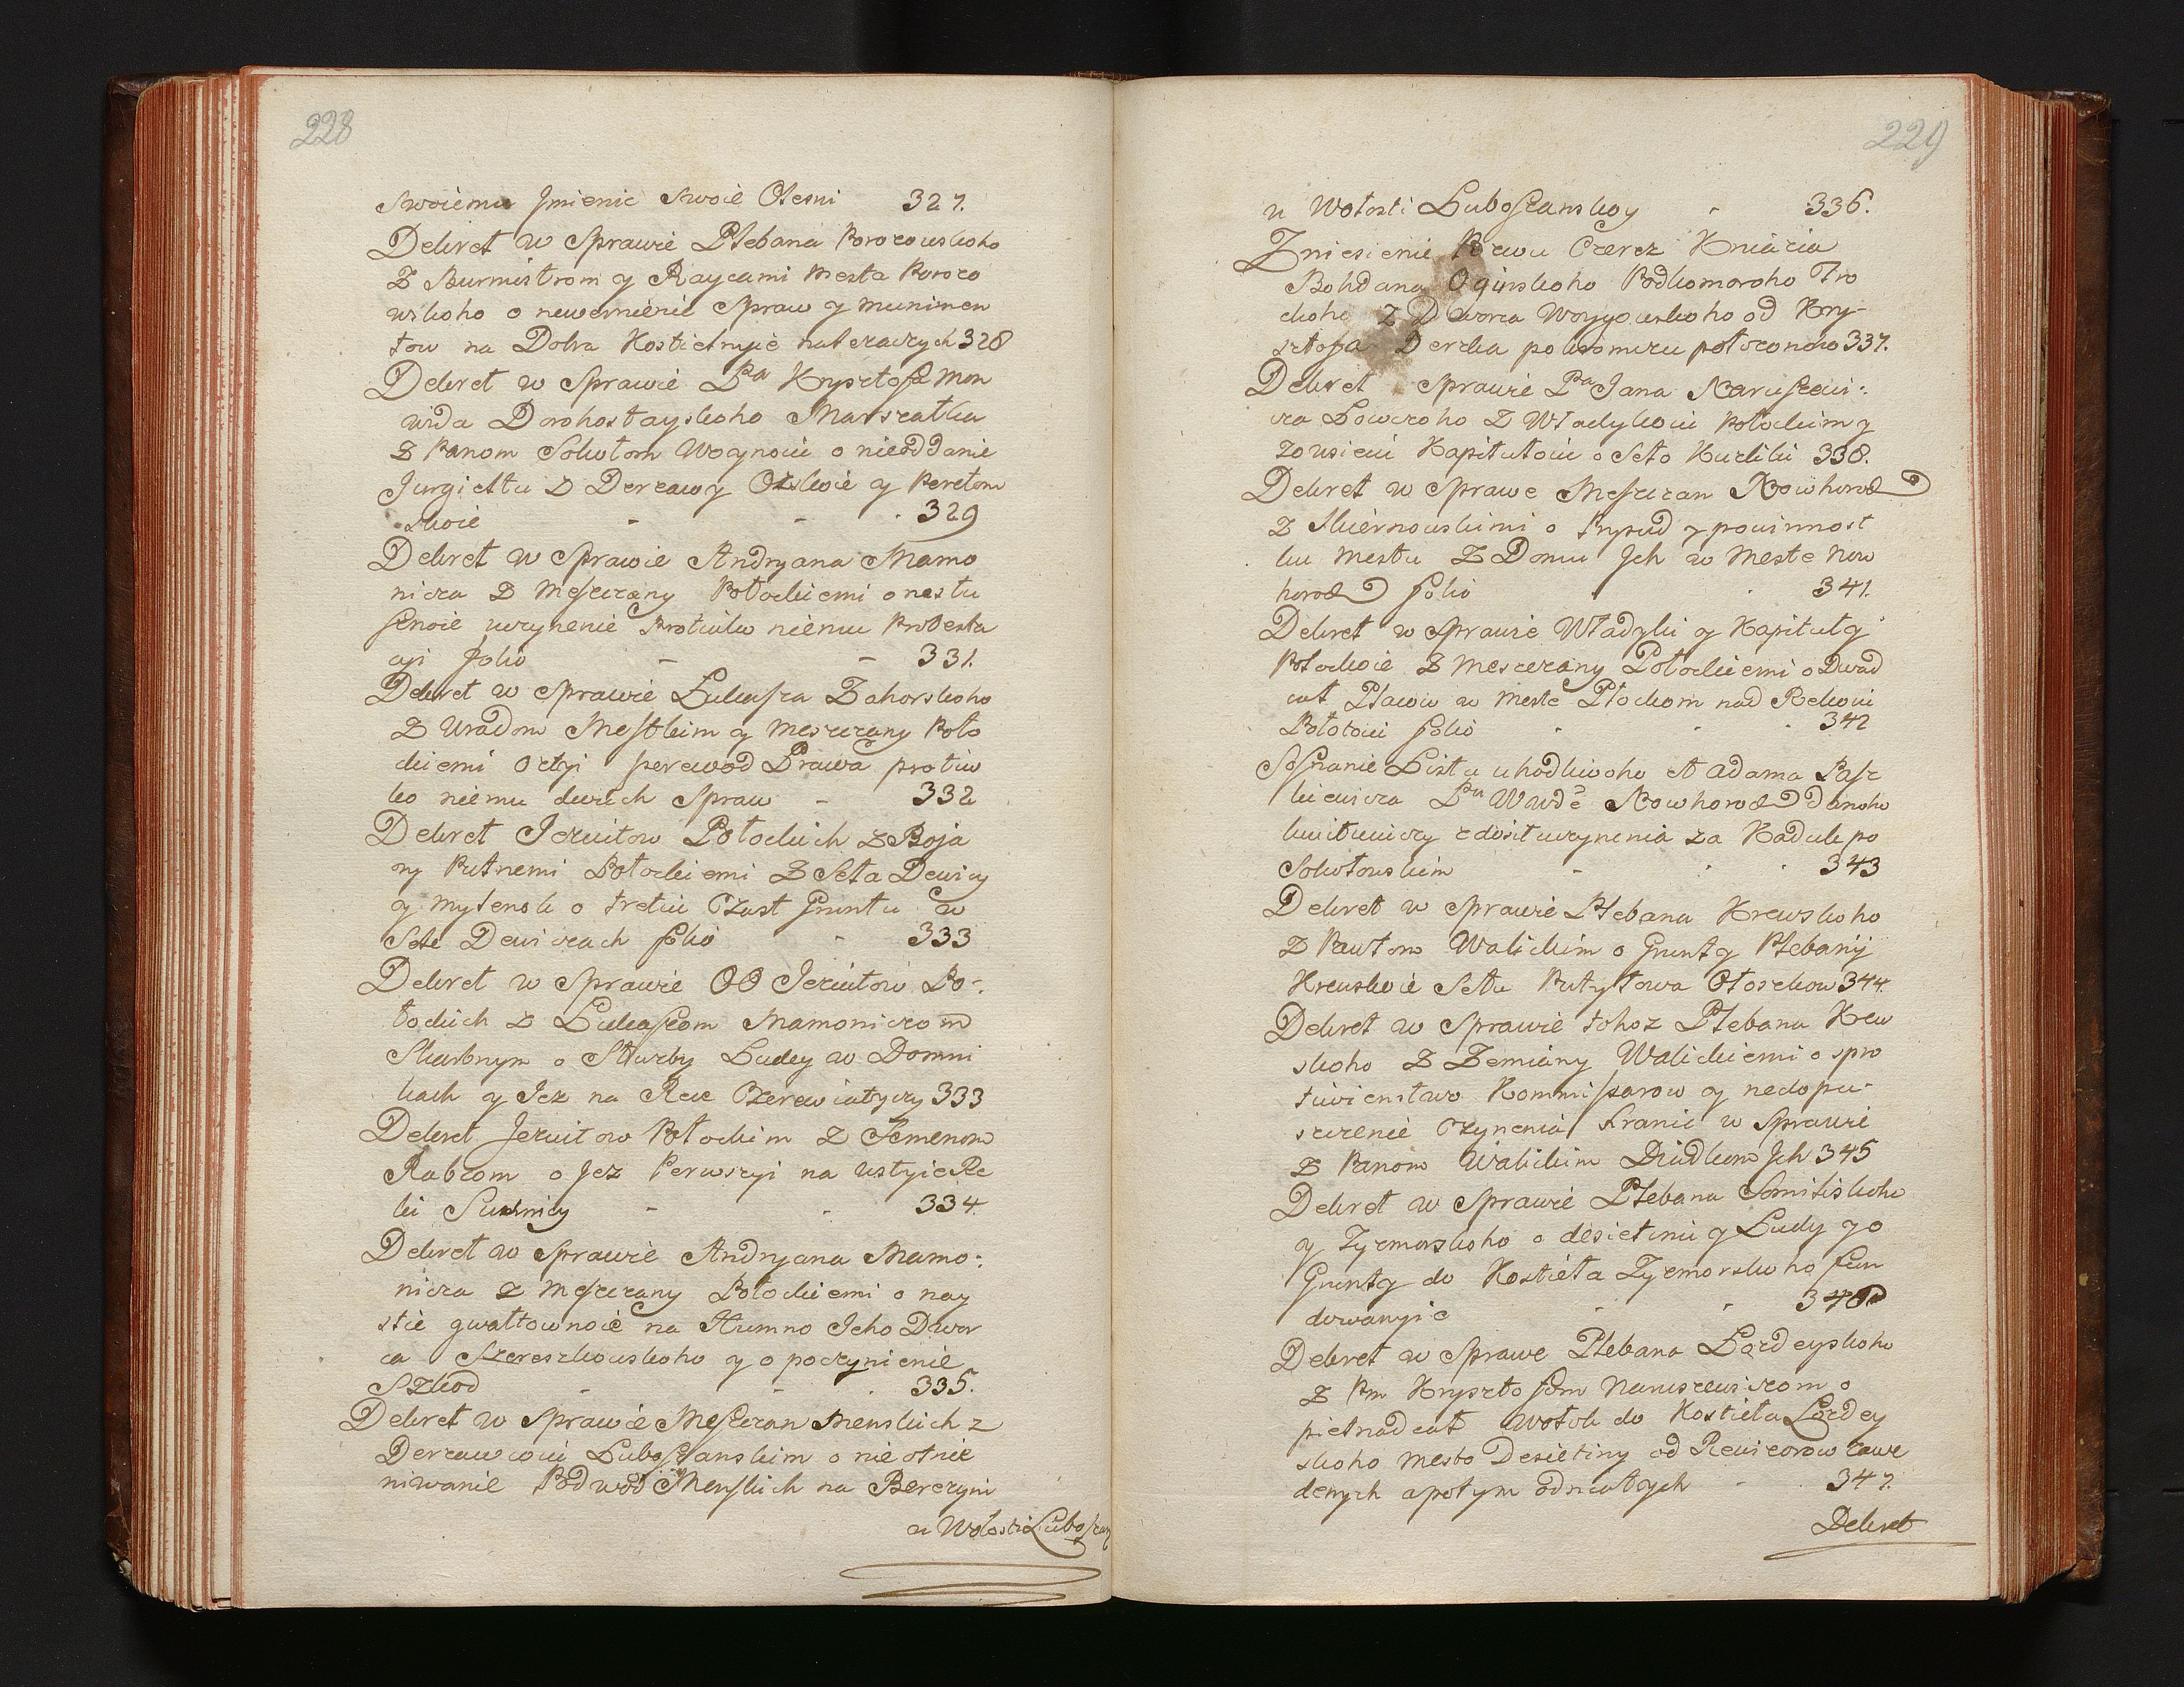 228
Swoiemu Jmienie Swoie Olesni 327.
Dekret w Sprawie Plebana Porozowskoho
Z Burmistrom y Raycami Mesta Porozo
wskoho o neweinienie Spraw y munimen
tow na Dobra Kostielnyie nalezaczych 328
Dekret w Sprawie Pa Krysztofa Mon
wida Dorohostayskoho Marszałka
Z Panom Sokołom Woynoiu o nieoddanie
Jurgieltu Z Derzawy Ozskoie y Perełom
skoie - - . 329
Dekret w Sprawie Andryana Mamo
nicza Z Meszczany Połockiemi o nestu
sznoie uczynenie Protiwko niemu Protesta
cyi folio - - 331.
Dekret w Sprawie Łukasza Zahorskoho
Z Uradom Mestskim y Meszczany Poło
ckiemi o etyi perewod Prawa protiw
ko niemu dwuch Spraw - 332
Dekret Jezuitow Połockich z Boja
ry Putnemi Połockiemi Z Seła Dewicy
y Mytenok o tretiu Czast Gruntu w
Sele Dewiczach folio - 333
Dekret w Sprawie OO Jezuitow Po-.
łockich z Łukaszom Mamoniczom
Skarbnym o Służby Ludey w Domni
kach y Jez na Rece Czerewiatyczy 333
Dekret Jezuitow Połockim Z Semenom
Rabcom o Jez Perwszyi na ustyie Re
ki Susznicy - . 334
Dekret w Sprawie Andryana Mamo:
nicza z Meszczany Połockiemi o nay
stie gwałtownoie na Humno Jeho Dwor
ca Szereszkowskoho y o poczynienie
Szkod - - . 335.
Dekret w Sprawie Meszczan Menskich z
Derzawcoiu Luboszanskim o nieotnie
niwanie Podwod Menskich na Berezyni
u Wołosti Luboszan
229
u Wołosti Luboszanskoy - 336.
Zniesienie Pozwu Czerez Kniazia
Bohdana Oginskoho Podkomoroho Tro
ckoho Z Dworca Woyzowskoho od Kry-
sztofa Derzka po kromeru połozonoho 337.
Dekret Sprawie Pa Jana Naruszewi:
cza Łowczoho Z Władykoiu Połockim y
zo wsieiu Kapitułoiu o Seło Kurliki 338.
Dekret w Sprawe Meszczan Nowhorod
Z Skiernowskimi o Prysud y powinnost
ku Mestu Z Domu Jch w Meste Now
horod folio . 341.
Dekret w Sprawie Władyki y Kapituły
Połockoie Z Meszczany Połockiemi o Dwad
cat Placow w Meste Płockom nad Rekoiu
Połotoiu folio . . . 342
Soznanie Listu uhodliwoho A Adama Pasz
kiewicza Pu Wwde Nowhorod danoho
kwituiuczy z dosit uczynenia za Kaduk po
Sokołowskim - . . 343
Dekret w Sprawie Plebana Krewskoho
Z Pawłom Walickim o Grunty Plebanij
Krewskoie Sełu Putyłowa Otoszkow 344.
Dekret w Sprawie tohoz Plebana Krew
skoho Z Zemiany Walickiemi o spro
tiwienstwo Kommissarow y nedopu-
szczenie Czynenia Hranic w Sprawie
Z Panom Walickim Diadkom Jch 345
Dekret w Sprawie Plebana Somiliskoho
y Zyzmorskoho o desietinu y Ludy y o
Grunty do Kostieła Zyzmorskoho fun
dowanyie - - 346
Dekret w Sprawe Plebana Łozdeyskoho
Z Pm Krysztofom Naruszewiczom o
pietnadcat Wołok do Kostieła Łozdey
skoho mesto Desietiny od Rewizorow zawe
denych a potym odniatych - 347.
Dekret